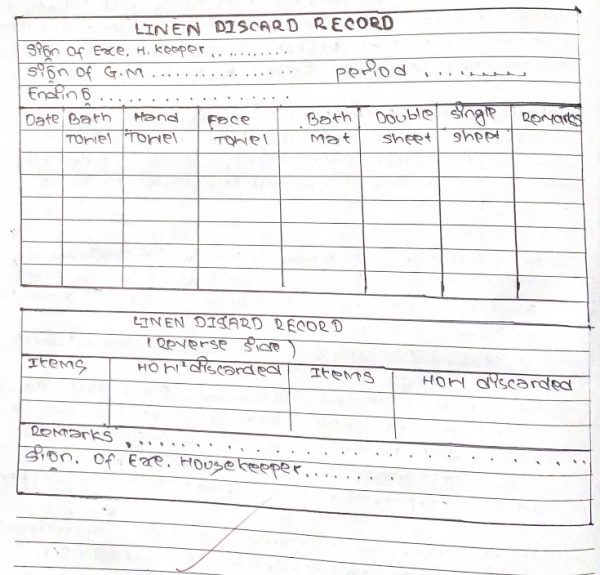 LINEN DISCARD RECORD
Sign of Exe. H. keeper...........
Sign of G.M................ period...........
Ending.....................
Date Bath Towel Hand Towel Face Towel Bath Mat Double sheet single sheet Remarks
LINEN DISARD RECORD
(Reverse Side)
Items How discarded Items How discarded
Remarks...........................
Sign. Of Exe. Housekeeper........